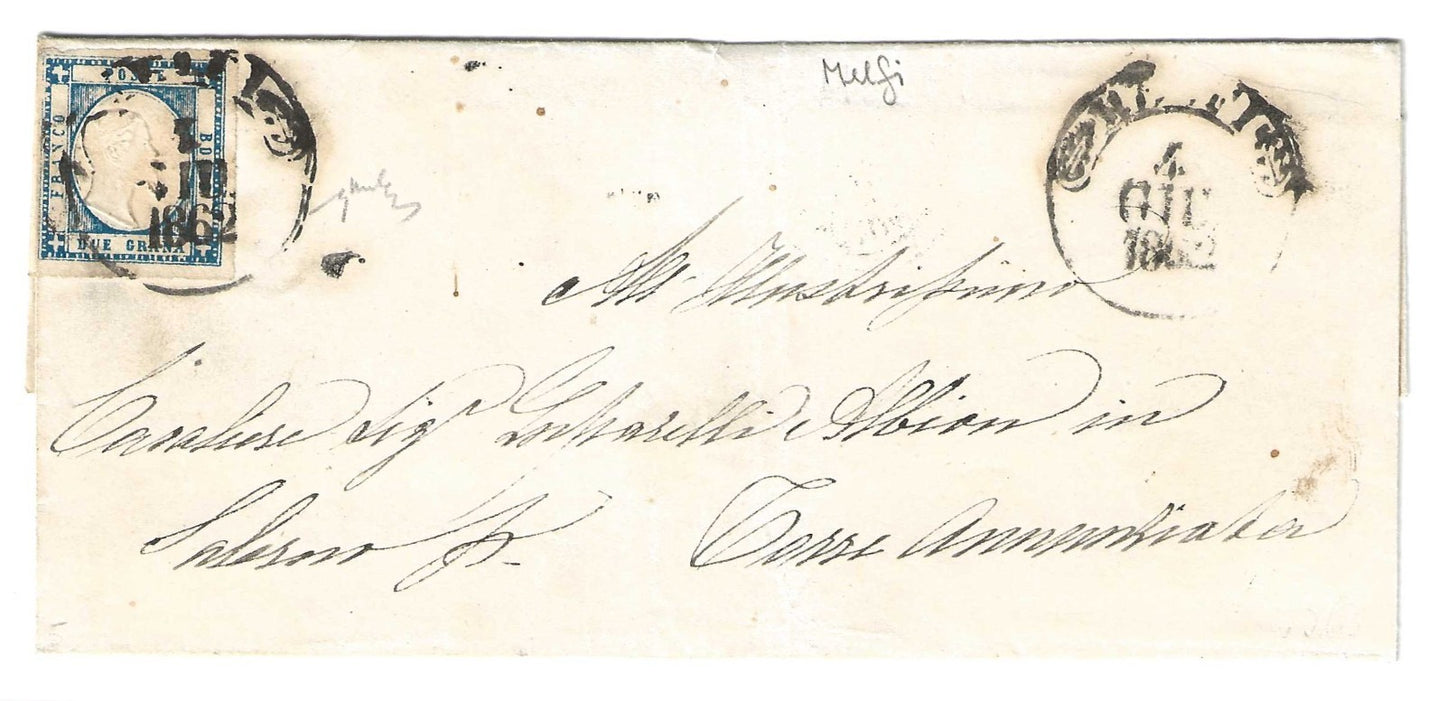 FRANCO
POSTE
BO
DUE GRANA
1862
Melfi
4
GIU
1862
All' Illustrissimo
Cavaliere Sigr Albion in
Salerno Torre Annunziata